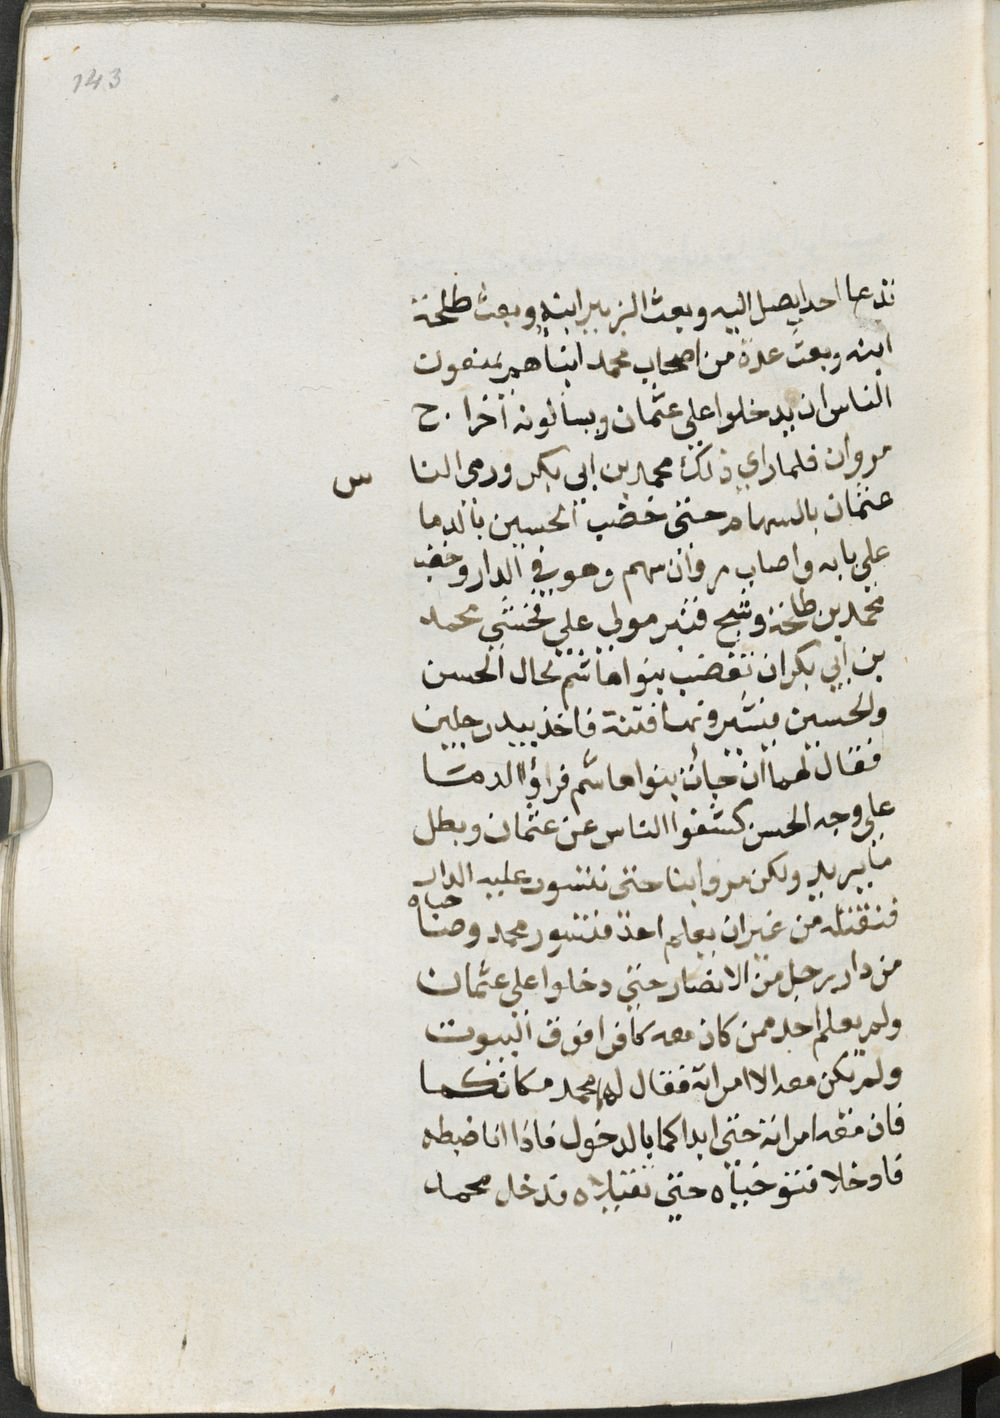 143
تدعا احدا يصل اليه وبعث الزبير ابنه وبعث طلحة
ابنه وبعث عدة من اصحاب محمد ابناهم يمنعون
الناس ان يدخلوا على عثمان ويسالونه اخراج
مروان فلما راي ذلك محمد بن ابى بكر ورمى النا س
عثمان بالسهام حتى خضب الحسين بالدما
على بابه واصاب مروان سهم وهو في الدار وخضب
محمد بن طلحة وشج قنبر مولى علي فخشي محمد
بن ابي بكر ان تغضب بنوا هاشم لحال الحسن
والحسين فيثيرونها فتنة فاخذ بيد رجلين
فقال لهما ان جائت بنوا هاشم فراؤا الدما
على وجه الحسن كشفوا الناس عن عثمان وبطل
ما يريد ولكن مروا بنا حتى نتسور عليه الدار
فنقتله من غير ان يعلم احد فتسور محمد وصاحباه
من دار رجل من الانصار حتى دخلوا على عثمان
ولم يعلم احد ممن كان معه كانوا فوق البيوت
ولم تكن معه الا امراته فقال لها محمد مكانكما
فان معه امراته حتى ابداكما بالدخول فاذا انا ضبطه
فادخلا فتوخياه حتى تقتلاه فدخل محمد